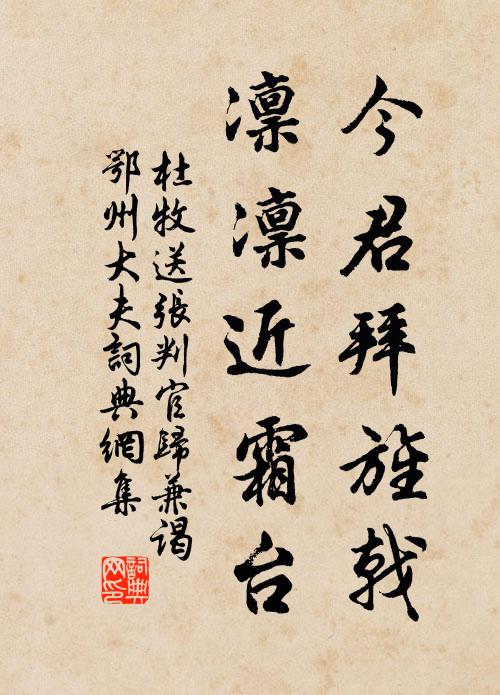 今君拜旌戟
凛凛近霜台
杜牧送張判官歸兼谒
鄂州大夫詞典網集
詞典网印